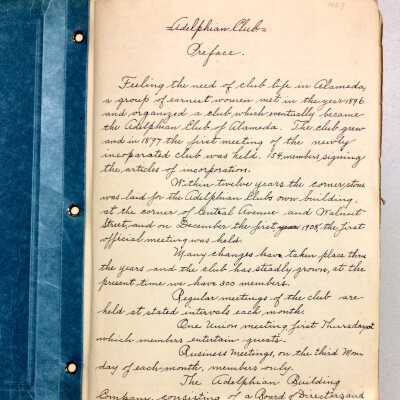 Adelphian Club
Preface.
Feeling the need of club life in Alameda,
a group of earnest women met in the year 1896
and organized a club which eventually became
the Adelphian Club of Alameda. The club grew
and in 1897 the first meeting of the newly
incoparated club was held. 154 members, signing
the articles of incorporation.
Within twelve years the corner stone
was laid for the Adelphian Clubs own building,
at the corner of Central Avenue and Walnut
Street, and on December the first year 1908, the first
official meeting was held.
Many changes have taken place thru
the years and the club has steadly grown, at the
present time we have 300 members.
Regular meetings of the club are
held at stated intervals each month.
One Union meeting first Thursday at
which members entertain guests.
Business Meetings, on the third Mon
day of each month, members only.
The Adelphian Building
Company, consisting of a Board of Directors, and